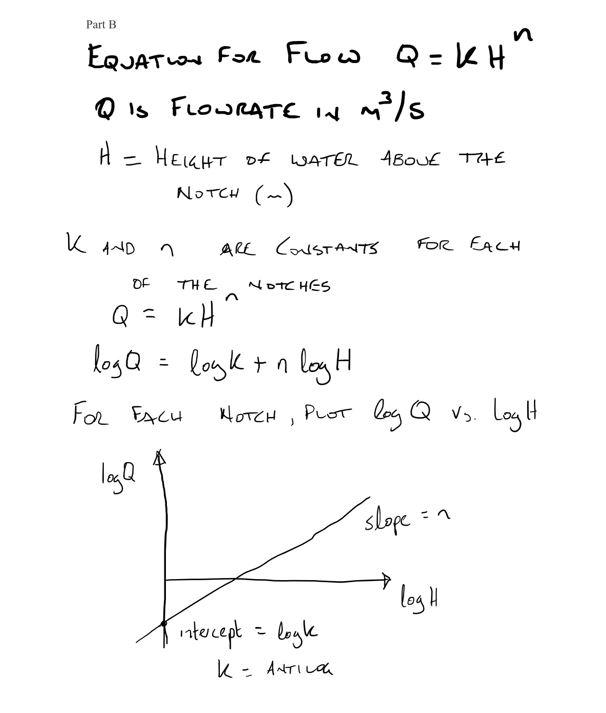 Part B
EQUATION FOR FLOW Q = KHⁿ
Q IS FLOWRATE IN m³/s
H = HEIGHT OF WATER ABOVE THE
NOTCH (m)
K AND n ARE CONSTANTS FOR EACH
OF THE NOTCHES
Q = KHⁿ
log Q = log K + n log H
FOR EACH NOTCH, PLOT log Q vs. log H
log Q
slope = n
log H
intercept = log k
K = ANTILOG